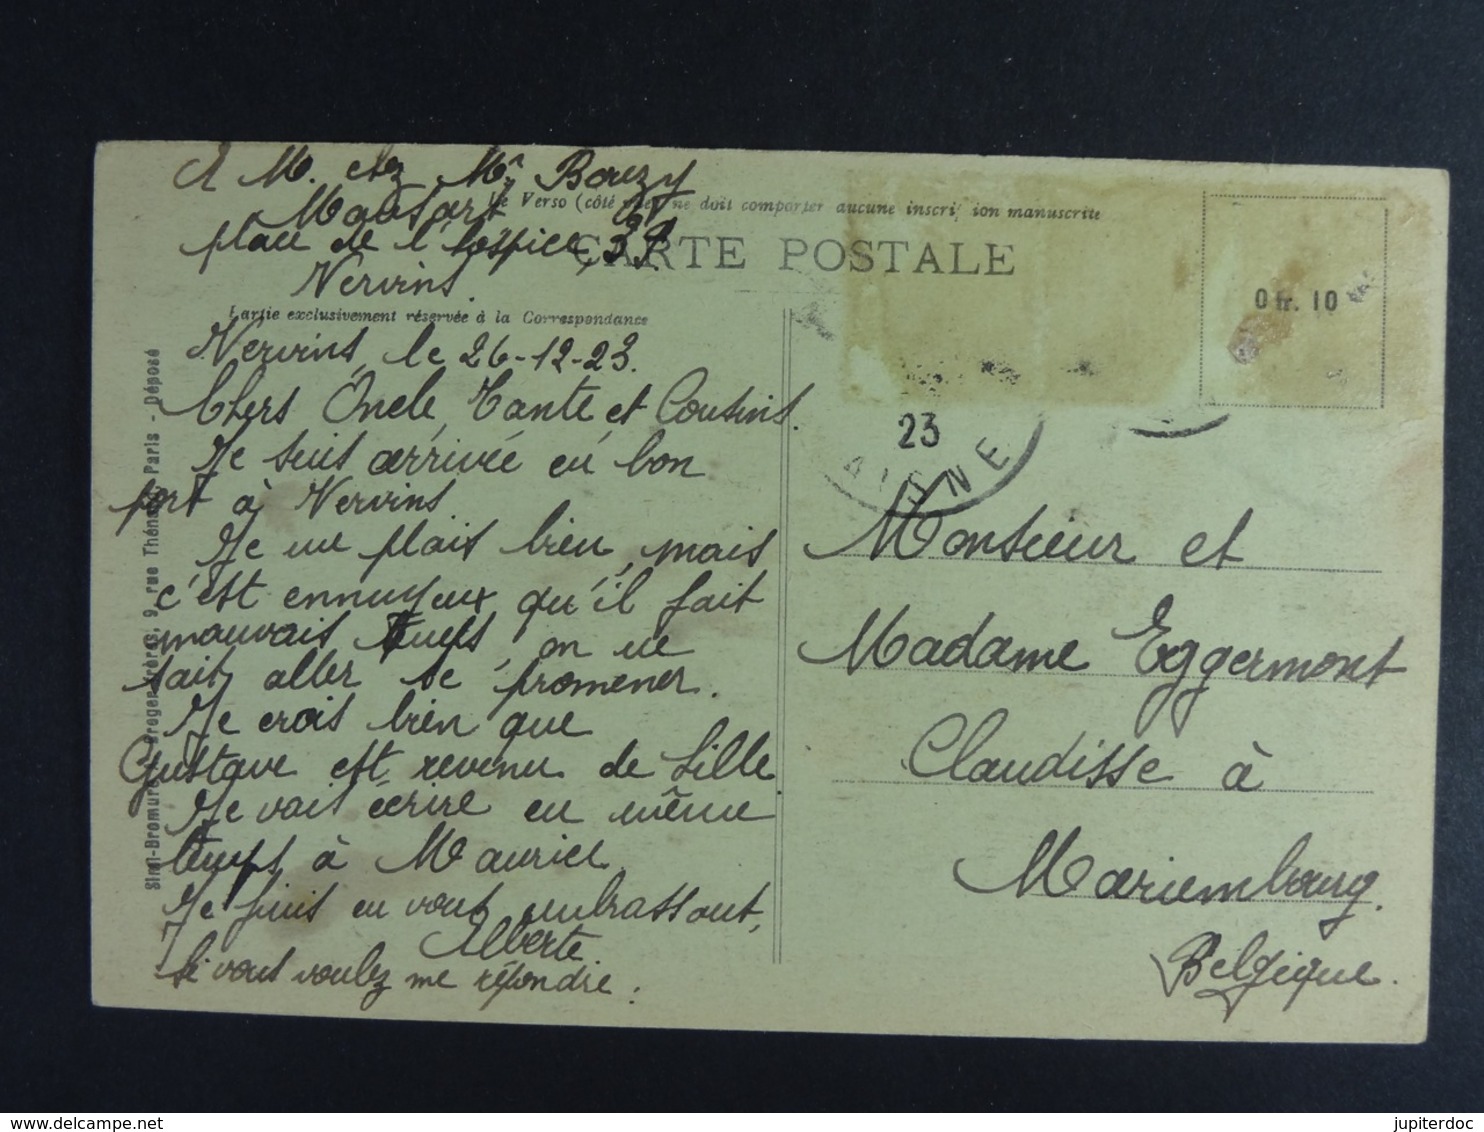 A M. chez Mr Bouzy
Mausart
place de l'hospice, 39
Nervins.
Le Verso (côté vue) ne doit comporter aucune inscription manuscrite
CARTE POSTALE
0 fr. 10
Partie exclusivement réservée à la Correspondance
Nervins, le 26-12-23.
Chers Oncle, Tante, et Cousins.
Je suis arrivée en bon
port à Nervins
Je me plais bien, mais
c'est ennuyeux qu'il fait
mauvais temps, on ne
sait aller se promener.
Je crois bien que
Gustave est revenu de Lille
Je vais écrire en même
temps à Maurice.
Je finis en vous embrassant,
Alberte
Si vous voulez me répondre :
23
AISNE
Monsieur et
Madame Eggermont
Claudisse à
Mariembourg.
Belgique.
Simili-Bromure - Breger frères, 9, rue Thénard, Paris - Déposé
delcampe.net
jupiterdoc